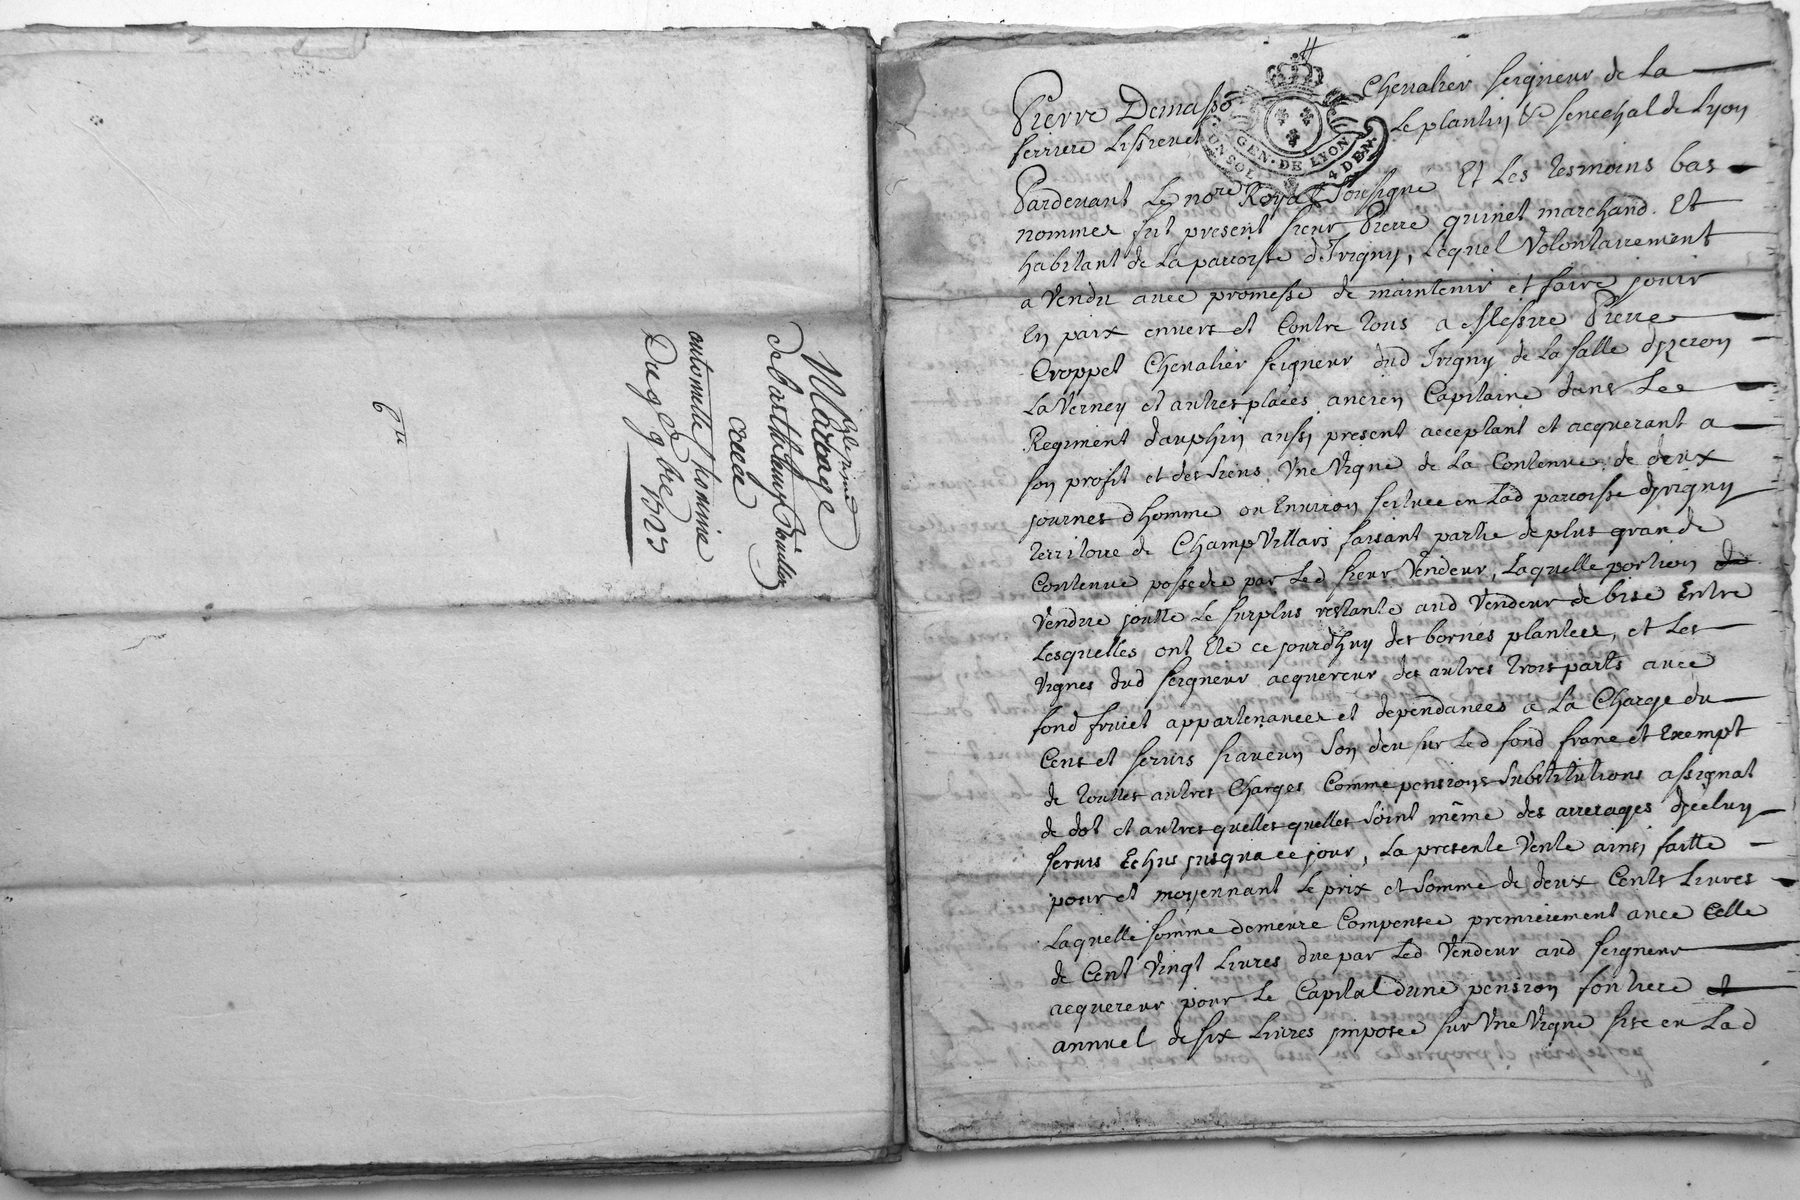 Mariage
de barthelemy
autonnette
Du 9e 9bre 1723
6m
Pierre Demasso Chevalier seigneur de La
ferriere Lissieuet Leplantin & senechal de Lyon
GEN·DE LYON
4 DEN.
Pardeuant Le nore Royal sousigne Et Les tesmoins bas
nommes fut present sieur Pierre quinet marchand. Et
habitant de La paroisse d'Irigny, Lequel Volontairement
a Vendu auec promesse de maintenir et faire jouir
En paix enuers et Contre tous a Messire Pierre
Croppet Chevalier seigneur dud Irigny de La salle dyzeron
La Verney et autres places ancien Capitaine dans Le
Regiment dauphin aussy present acceptant et acquerant a
son profit et des siens Vne Vigne de La Contenue de deux
journes dhomme ou Enuiron scituee en Lad paroisse dyrigny
territoire de Champ Villars faisant partie de plus grande
Contenue possedee par Led sieur Vendeur, Laquelle portion de
Vendue joutte Le surplus restante aud Vendeur de bise Entre
Lesquelles ont Ete ce jourdhuy des bornes plantees, et Les
Vignes dud seigneur acquereur des autres trois parts auec
fond fruict appartenances et dependances a La Charge du
Cens et seruis siaucun Son deu sur Led fond franc et Exempt
de touttes autres Charges Comme pensions substitutions assignat
de dot et autres quelles quelles soint même des arrerages dyceluy
seruis Echus jusqua ce jour, La presente Vente ainsi faitte
pour et moyennant Le prix et somme de deux Cents Liures
Laquelle somme demeure Compensee premierement auec Celle
de Cent Vingt Liures due par Led Vendeur aud seigneur
acquereur pour Le Capital dune pension fonciere et
annuel de six Liures jmposee sur Vne Vigne sise en Lad